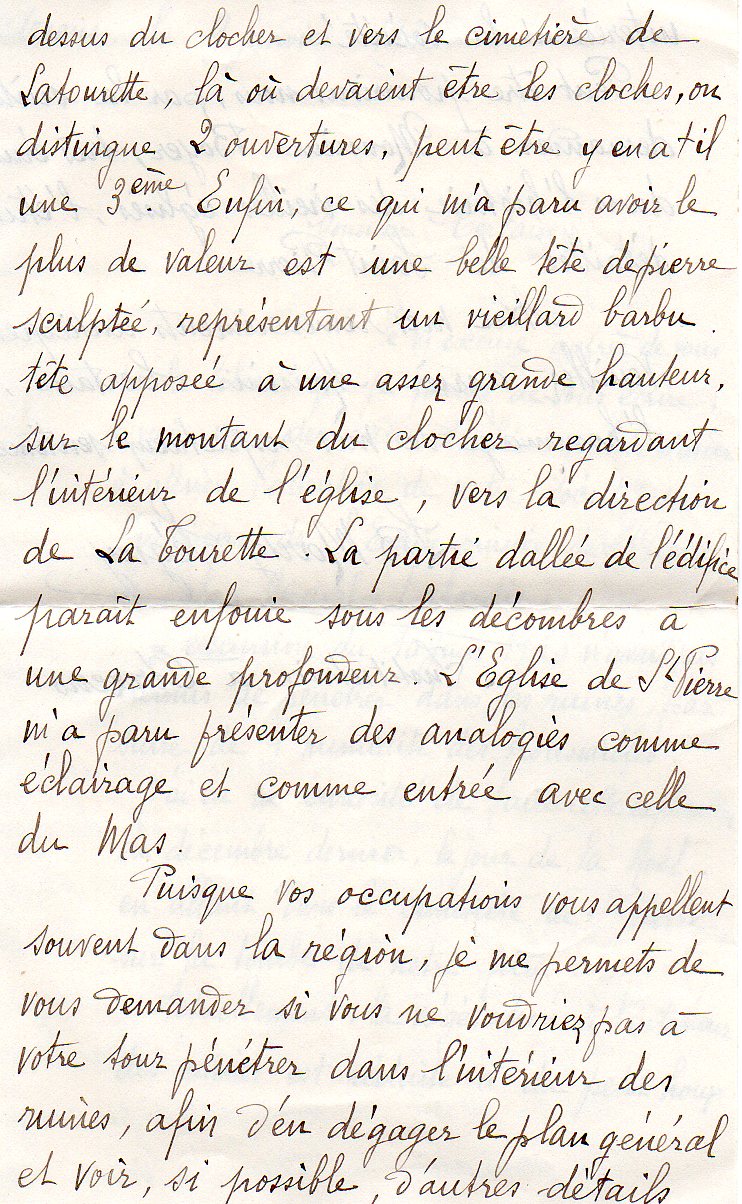 dessus du clocher et vers le cimetière de
Latourette, là où devaient être les cloches, on
distingue 2 ouvertures, peut être y en a t il
une 3ème Enfin ce qui m'a paru avoir le
plus de valeur est une belle tête de pierre
sculptée, représentant un vieillard barbu.
tête apposée à une assez grande hauteur,
sur le montant du clocher regardant
l'intérieur de l'église, vers la direction
de La Tourette. La partie dallée de l'édifice
paraît enfouie sous les décombres à
une grande profondeur. L'Eglise de St Pierre
m'a paru présenter des analogies comme
éclairage et comme entrée avec celle
du Mas.
Puisque vos occupations vous appellent
souvent dans la région, je me permets de
vous demander si vous ne voudriez pas à
votre tour pénétrer dans l'intérieur des
ruines, afin d'en dégager le plan général
et voir, si possible, d'autres détails